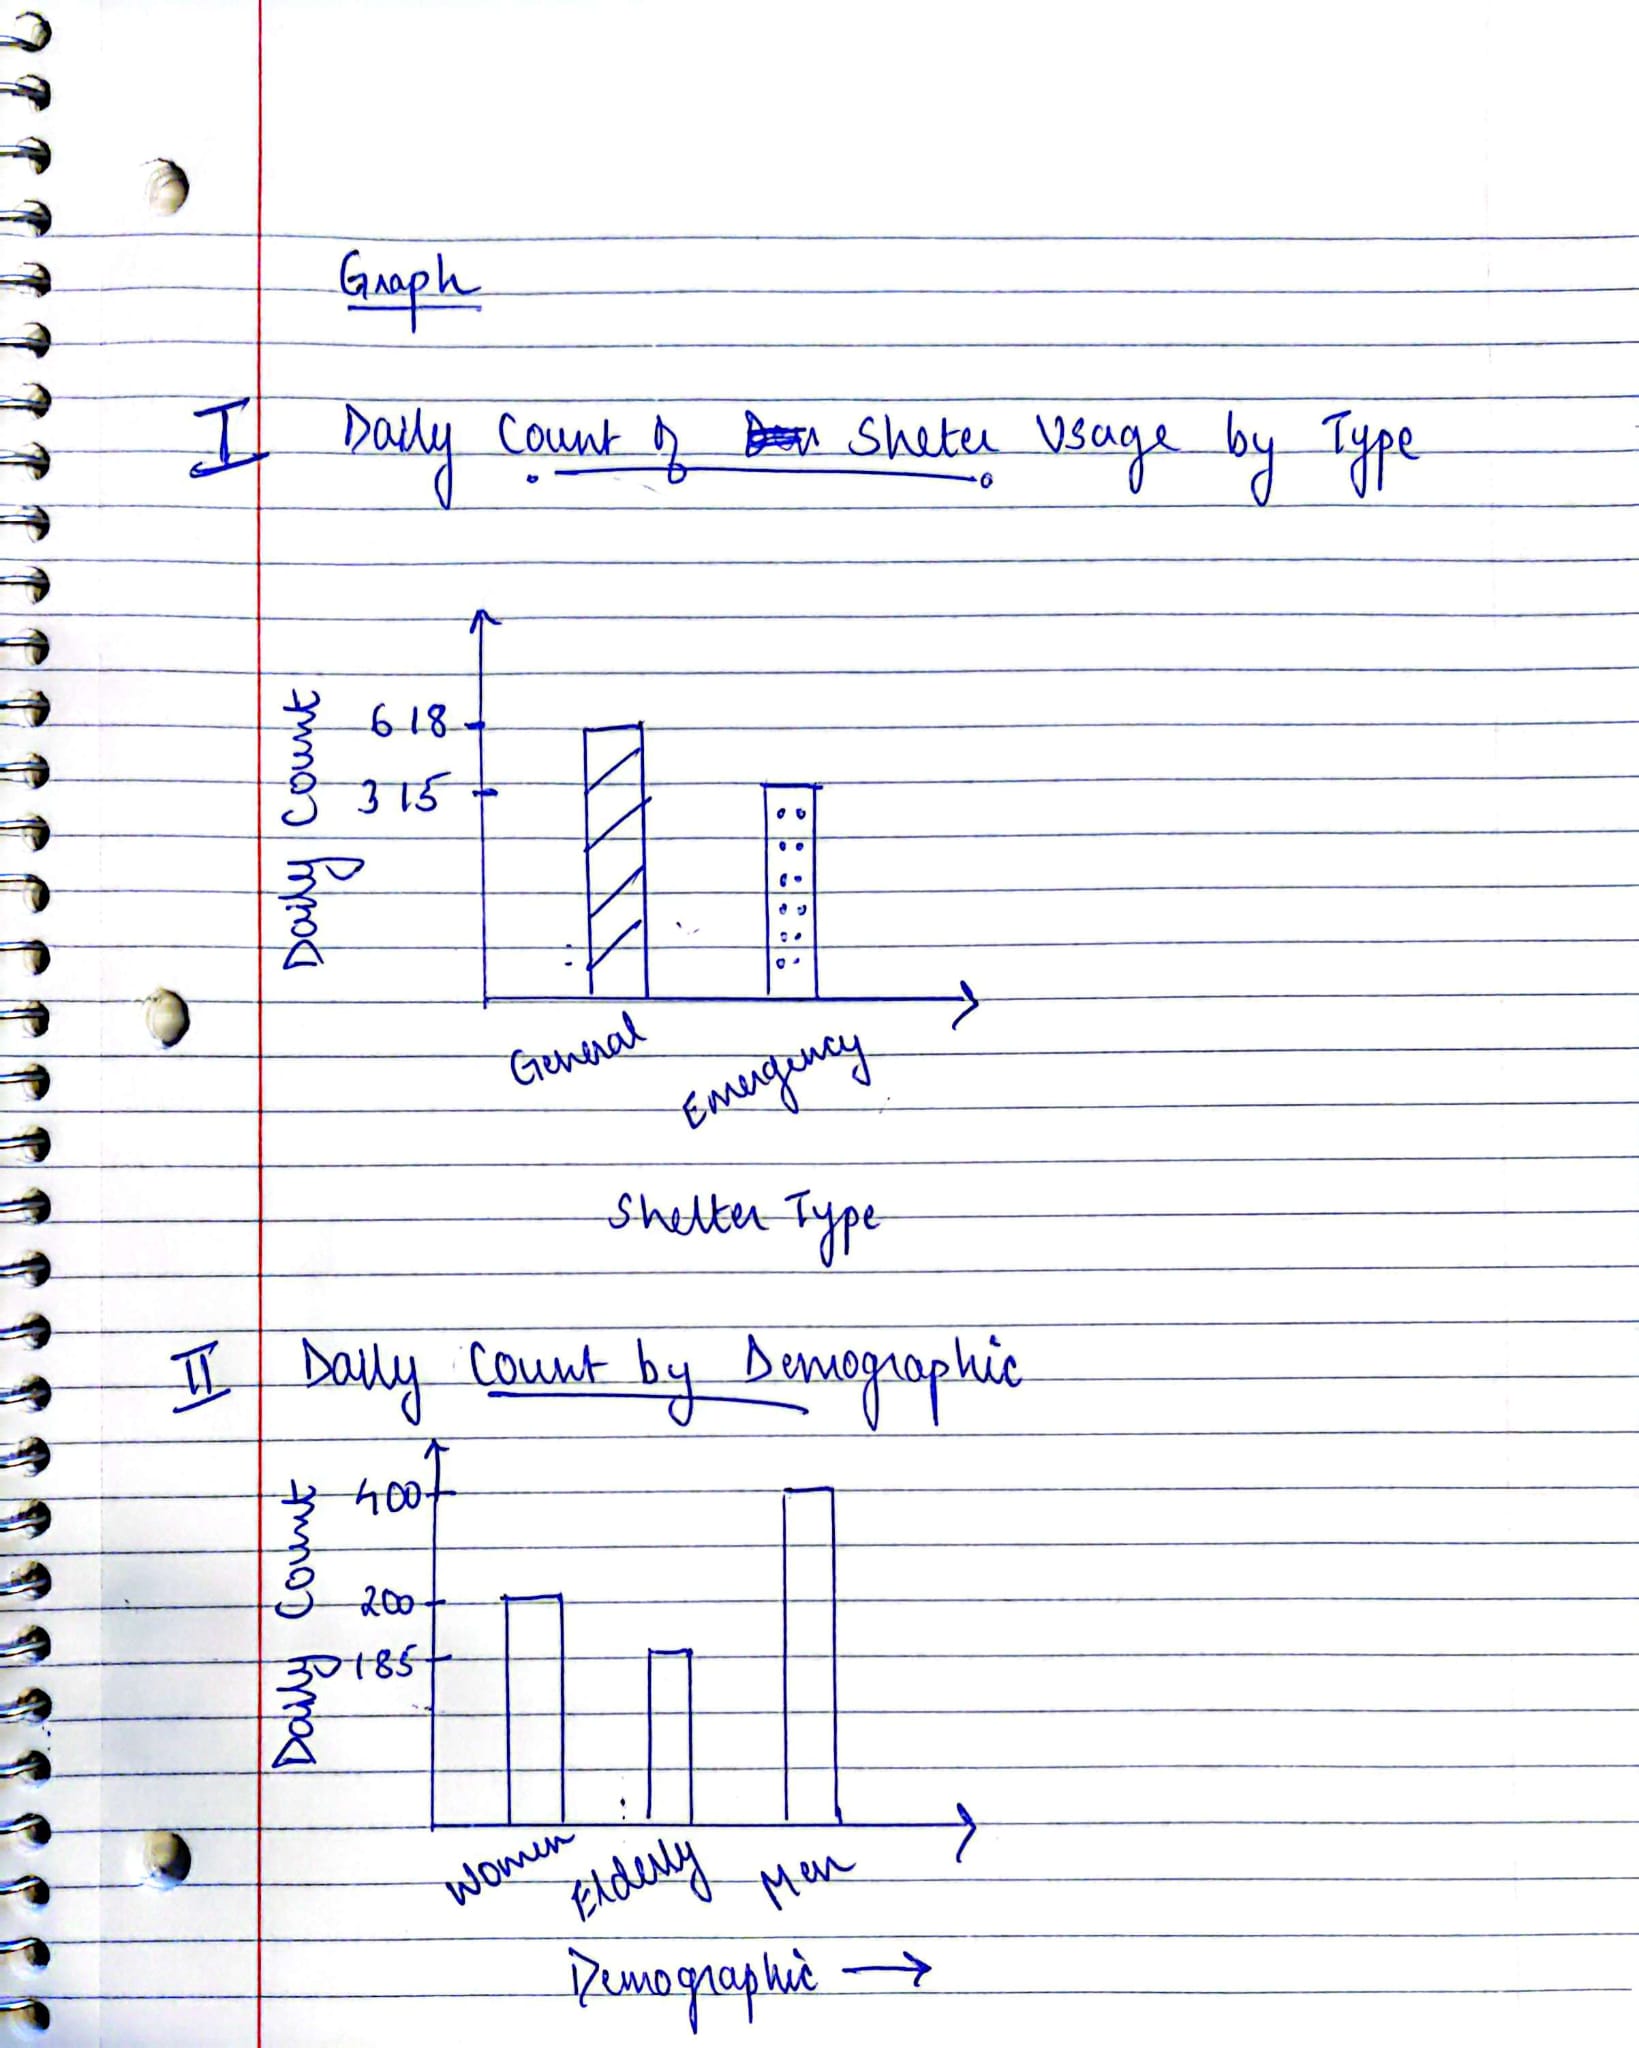 Graph
I Daily Count of Sheter Usage by Type
Daily Count
618
315
General
Emergency
Shelter Type
II Daily Count by Demographic
Daily Count
400
200
185
Women
Elderly
Men
Demographic →